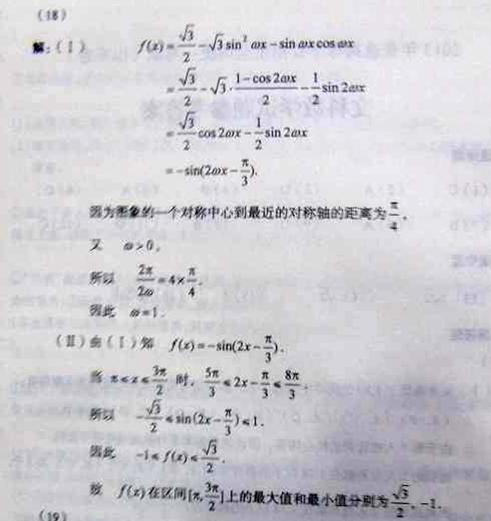 (18)
解:(Ⅰ) f(x)=√3/2-√3 sin² ωx-sin ωx cos ωx
=√3/2-√3·(1-cos2ωx)/2-1/2 sin 2ωx
=√3/2 cos 2ωx-1/2 sin 2ωx
=-sin(2ωx-π/3).
因为图象的一个对称中心到最近的对称轴的距离为π/4,
又 ω>0,
所以 2π/2ω=4×π/4.
因此 ω=1.
(Ⅱ)由(Ⅰ)知 f(x)=-sin(2x-π/3).
当 π≤x≤3π/2 时, 5π/3≤2x-π/3≤8π/3.
所以 -√3/2≤sin(2x-π/3)≤1.
因此 -1≤f(x)≤√3/2.
故 f(x)在区间[π,3π/2]上的最大值和最小值分别为√3/2,-1.
(19)